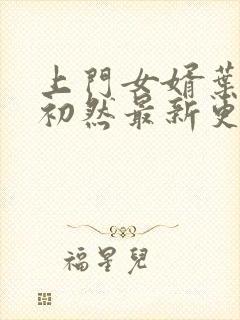 上門女婿葉
初然最新更
福星兒